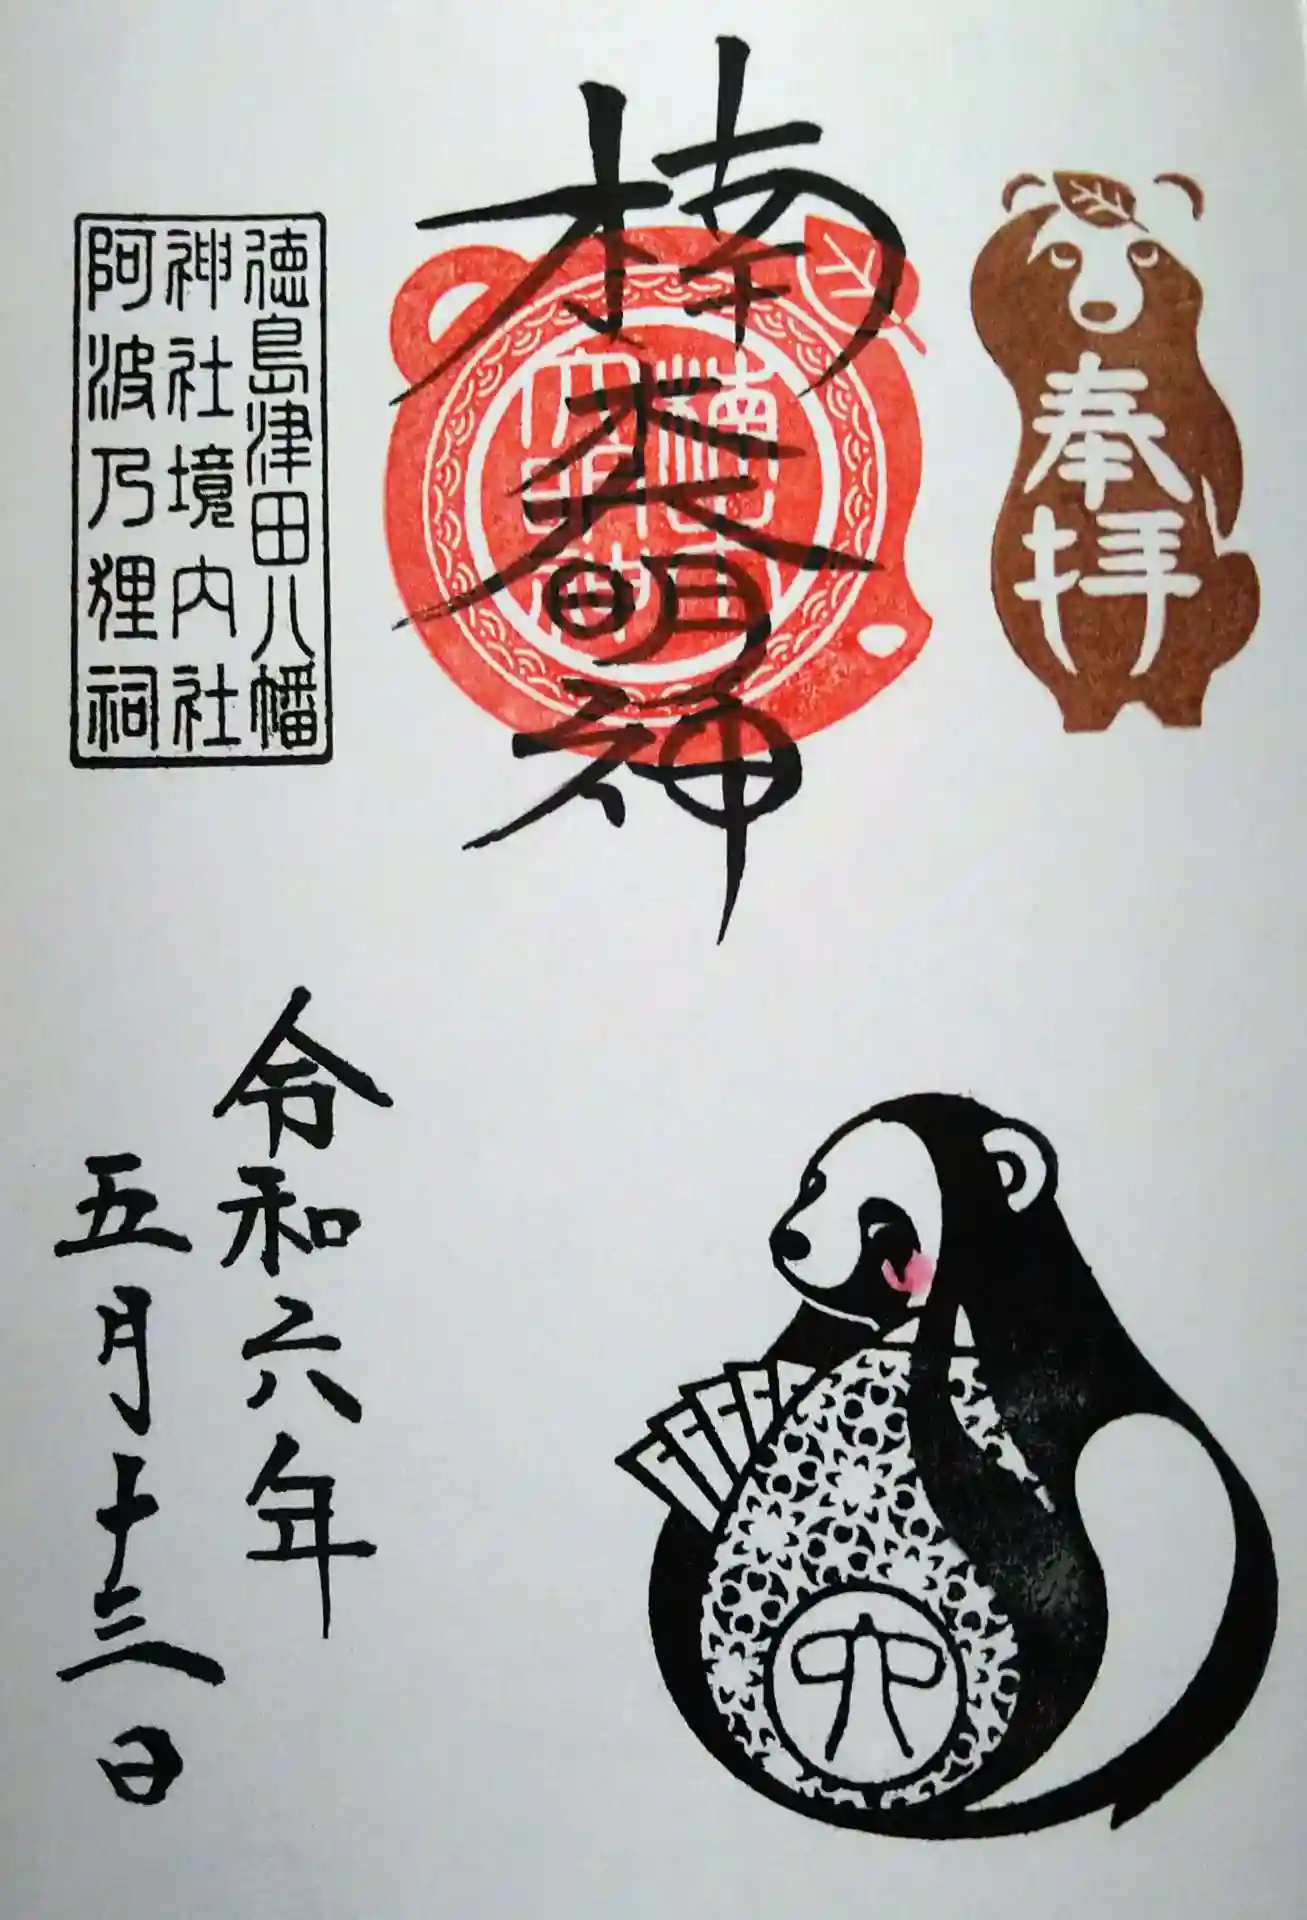 奉拝
楠 大明神
徳島津田八幡
神社境内社
阿波乃狸祠
六
令和六年
五月十三日